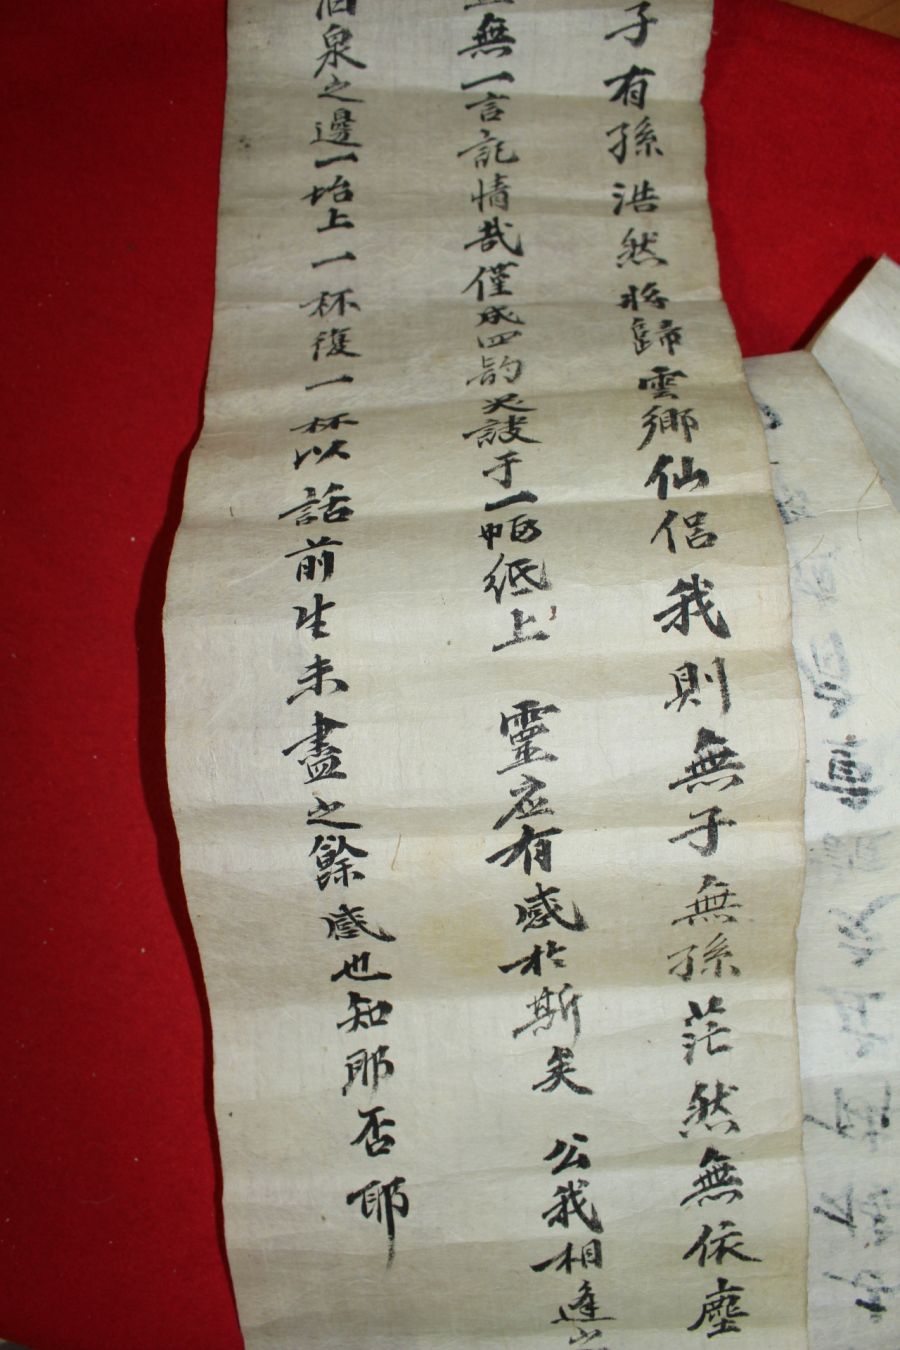 子有孫浩然將歸雲鄉仙侶我則無子無孫茫然無依塵
無一言記情哉僅成四韵哭訣于一幅紙上 靈應有感於斯矣 公我相逢
酒泉之邊一坮上一杯復一杯以話前生未盡之餘感也知耶否耶